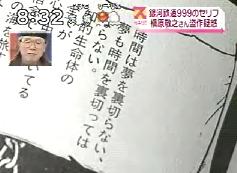 8:32
銀河鉄道999のセリフ
槇原敬之さん盗作疑惑
時間は夢を裏切らない、
夢も時間を裏切っては
らない。
的生命体の